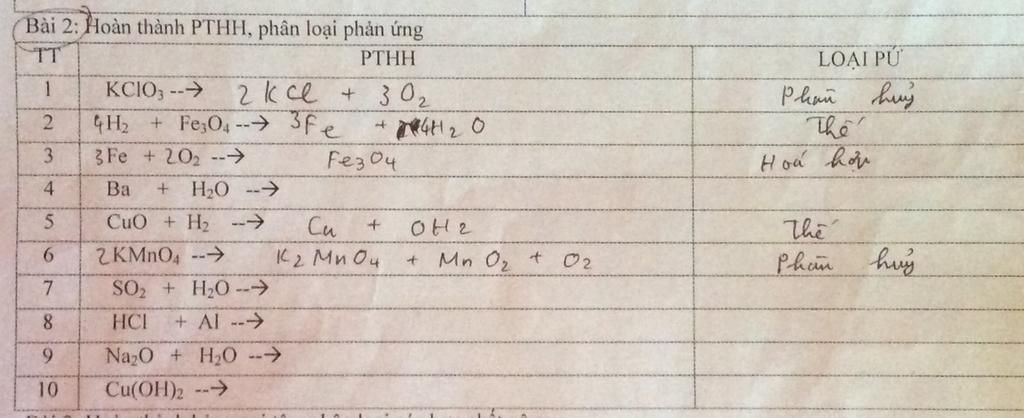 Bài 2: Hoàn thành PTHH, phân loại phản ứng
TT PTHH LOẠI PỨ
1 KClO₃ --→ 2 KCl + 3 O₂ Phân huỷ
2 4H₂ + Fe₃O₄ --→ 3Fe + 4H₂O Thế
3 3Fe + 2O₂ --→ Fe₃O₄ Hoá hợp
4 Ba + H₂O --→
5 CuO + H₂ --→ Cu + OH₂ Thế
6 2KMnO₄ --→ K₂MnO₄ + MnO₂ + O₂ Phân huỷ
7 SO₂ + H₂O --→
8 HCl + Al --→
9 Na₂O + H₂O --→
10 Cu(OH)₂ --→